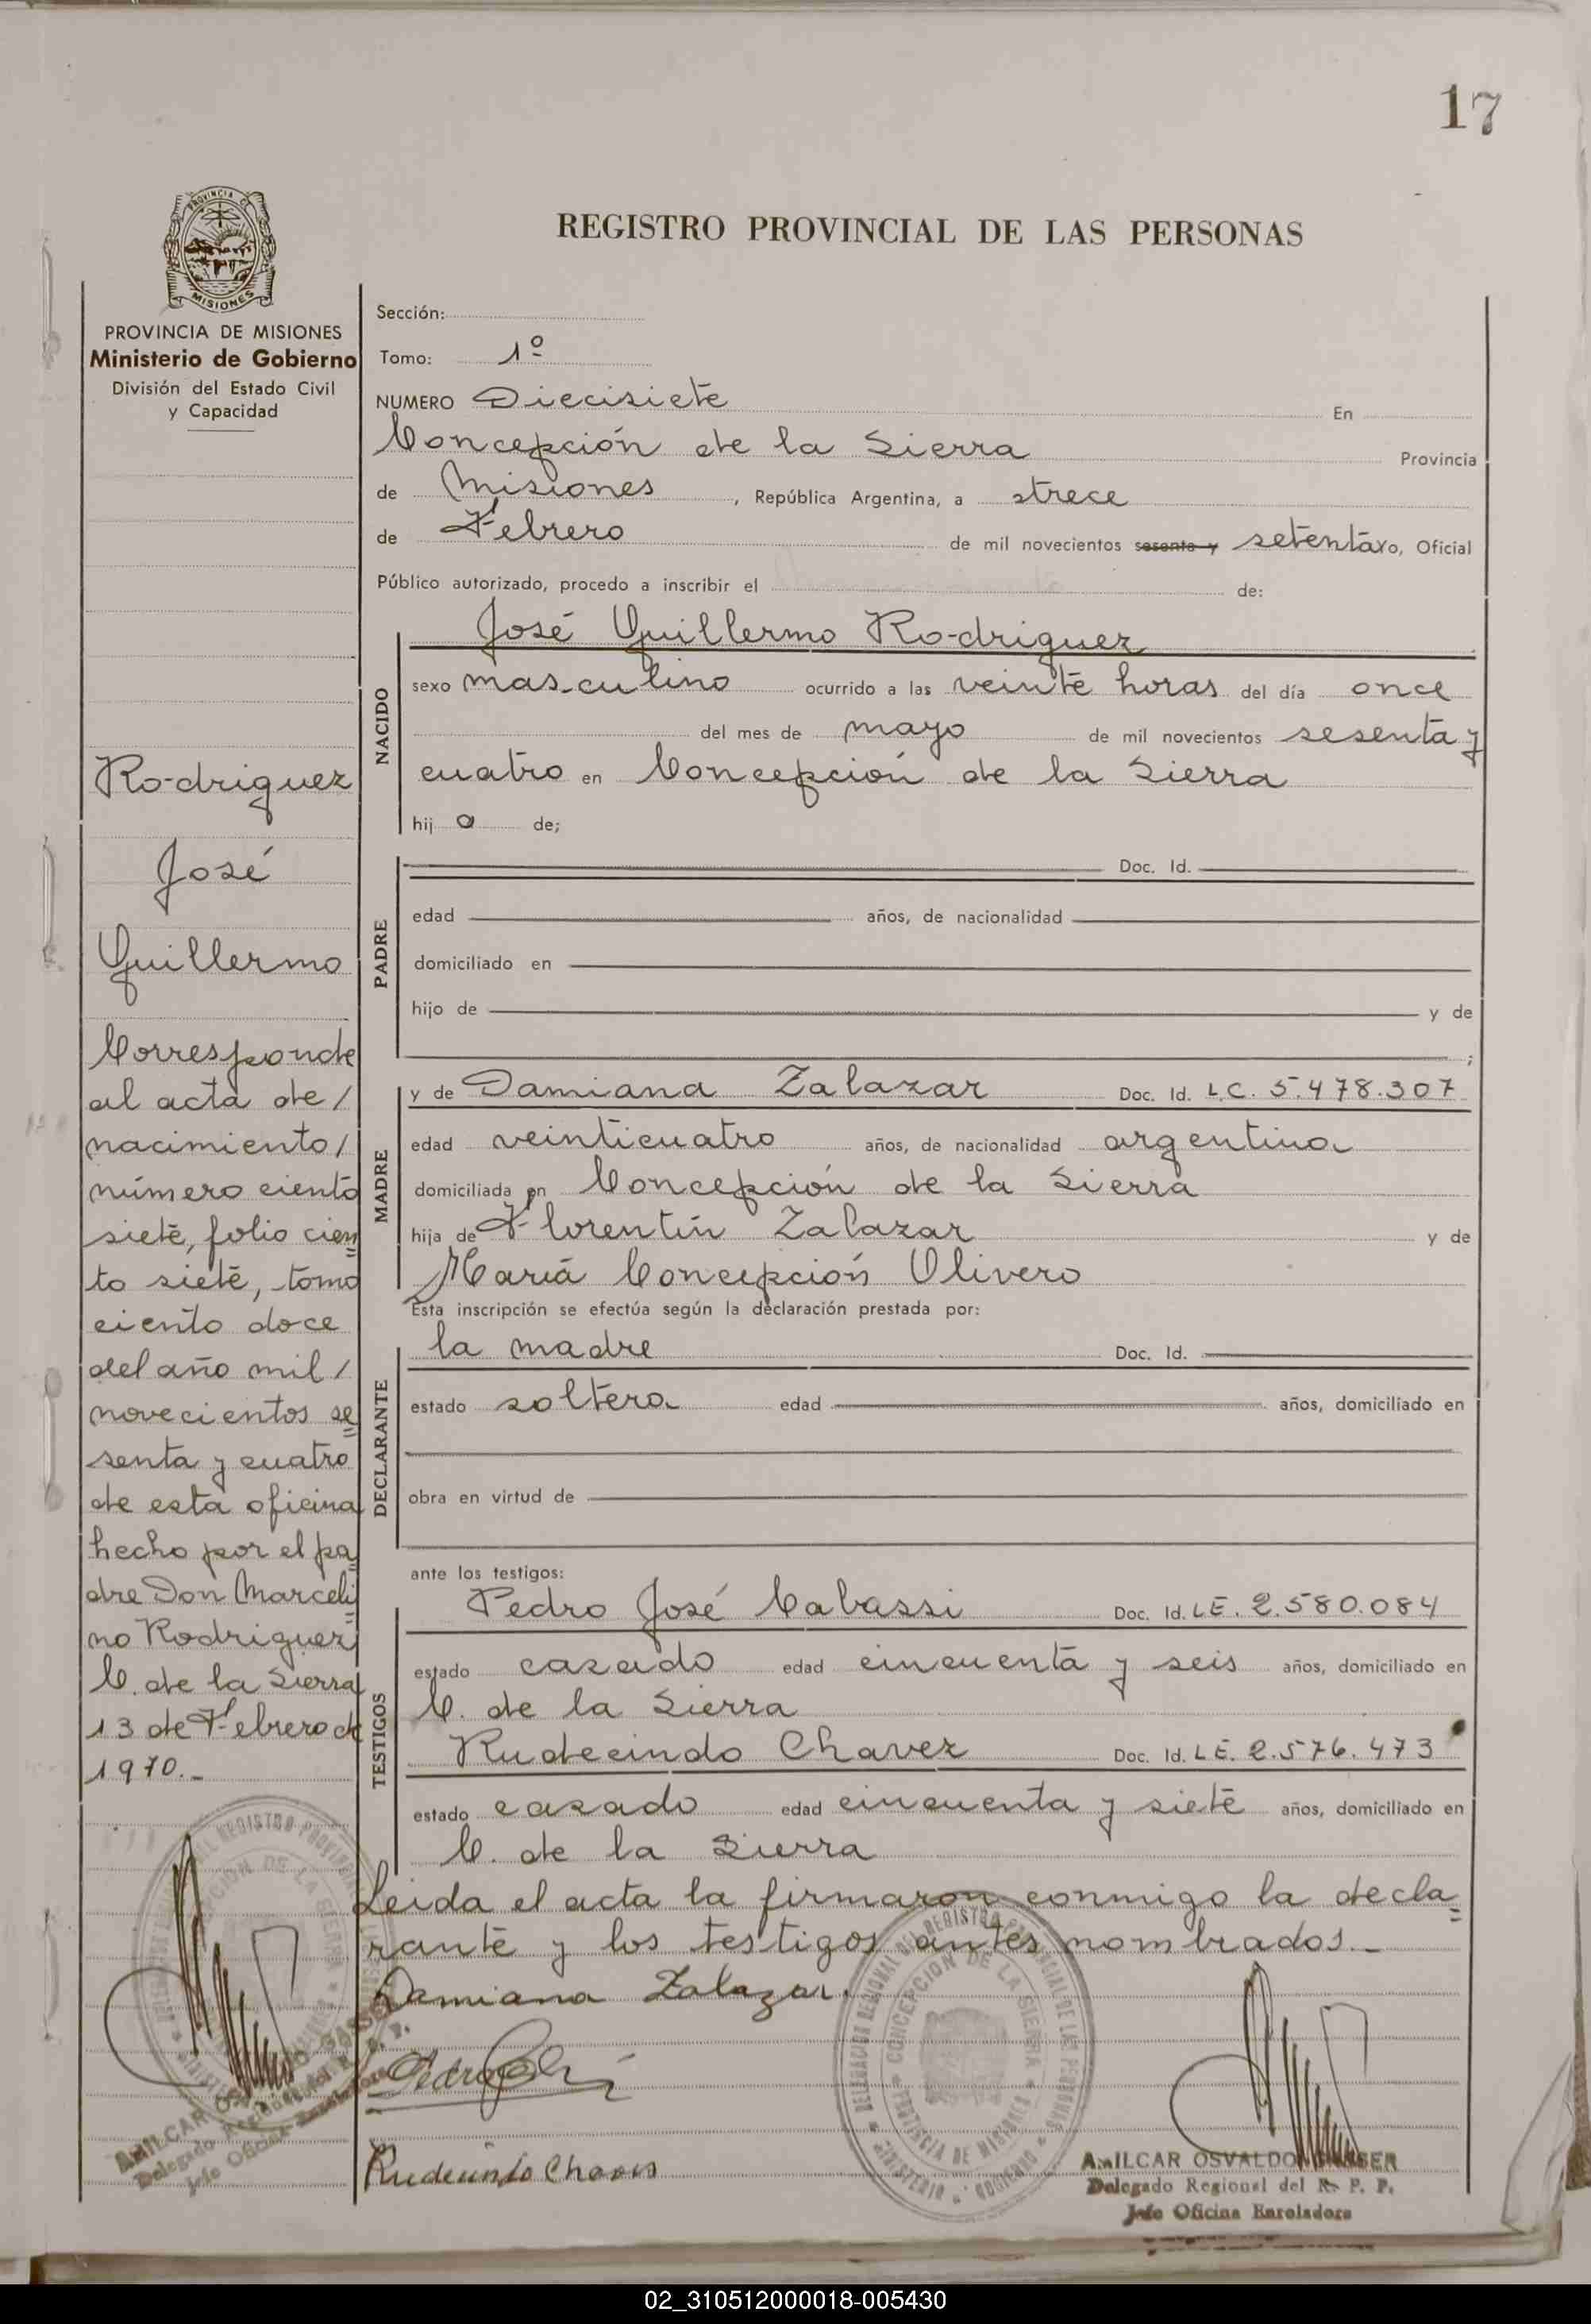 17
PROVINCIA DE
MISIONES
REGISTRO PROVINCIAL DE LAS PERSONAS
PROVINCIA DE MISIONES
Ministerio de Gobierno
División del Estado Civil
y Capacidad
Sección:
Tomo: 1º
NUMERO Diecisiete En
Concepción de la Sierra Provincia
de Misiones, República Argentina, a trece
de Febrero de mil novecientos sesenta y setenta, Oficial
Público autorizado, procedo a inscribir el de:
NACIDO
José Guillermo Rodriguez
sexo masculino ocurrido a las veinte horas del día once
del mes de mayo de mil novecientos sesenta y
cuatro en Concepción de la Sierra
hijo de;
PADRE
Doc. Id.
edad años, de nacionalidad
domiciliado en
hijo de y de
;
MADRE
y de Damiana Zalazar Doc. Id. L.C. 5.478.307
edad veinticuatro años, de nacionalidad argentina
domiciliada en Concepción de la Sierra
hija de Florentín Zalazar y de
María Concepción Olivero
Esta inscripción se efectúa según la declaración prestada por:
DECLARANTE
la madre Doc. Id.
estado soltera edad años, domiciliado en
obra en virtud de
ante los testigos:
TESTIGOS
Pedro José Cabassi Doc. Id. L.E. 2.580.084
estado casado edad cincuenta y seis años, domiciliado en
C. de la Sierra
Rudecindo Chavez Doc. Id. L.E. 2.576.473
estado casado edad cincuenta y siete años, domiciliado en
C. de la Sierra
Leida el acta la firmaron conmigo la decla=
rante y los testigos antes nombrados.-
Damiana Zalazar.
Rudecindo Chaves
Rodriguez
José
Guillermo
Corresponde
al acta de/
nacimiento/
número ciento
siete, folio cien=
to siete, tomo
ciento doce
del año mil/
novecientos se=
senta y cuatro
de esta oficina
hecho por el pa=
dre Don Marceli=
no Rodriguez
C. de la Sierra
13 de Febrero de
1970.-
DELEGACION REGIONAL DEL REGISTRO PROVINCIAL DE LAS PERSONAS
CONCEPCION DE LA SIERRA
PROVINCIA DE MISIONES
MINISTERIO DE GOBIERNO
AMILCAR OSVALDO
Delegado Regional del R. P. P.
Jefe Oficina Enroladora
AMILCAR OSVALDO
Delegado Regional del R. P. P.
Jefe Oficina Enroladora
02_310512000018-005430